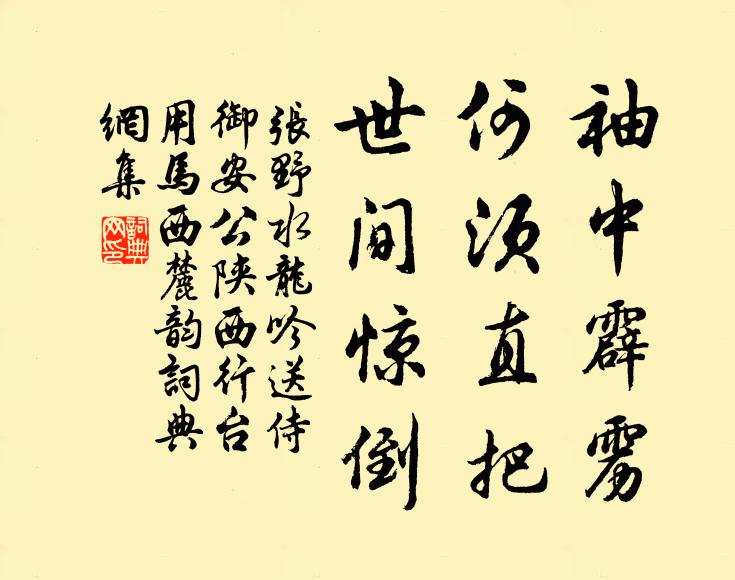 袖中霹雳
何須直把
世间惊倒
張野水龍吟送侍
御安公陝西行台
用馬西麓韵詞典
網集
詞典
网印